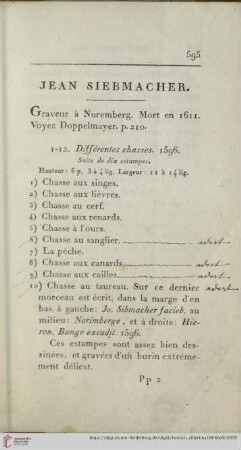 595
JEAN SIEBMACHER.
Graveur à Nuremberg. Mort en 1611.
Voyez Doppelmayer. p. 210.
1-12. Différentes chasses. 1596.
Suite de dix estampes.
Hauteur: 6 p. 3 à 4 lig. Largeur: 11 à 14 lig.
1) Chasse aux singes.
2) Chasse aux lièvres.
3) Chasse au cerf.
4) Chasse aux renards.
5) Chasse à l'ours.
6) Chasse au sanglier. adest
7) La pêche.
8) Chasse aux canards. adest
9) Chasse aux cailles. adest
10) Chasse au taureau. Sur ce dernier
morceau est écrit, dans la marge d'en
bas, à gauche: Jo. Sibmacher facieb. au
milieu: Norimberge, et à droite: Hie-
ron. Bange excudit. 1596.
Ces estampes sont assez bien des-
sinées, et gravées d'un burin extrême-
ment délicat.
Pp 2